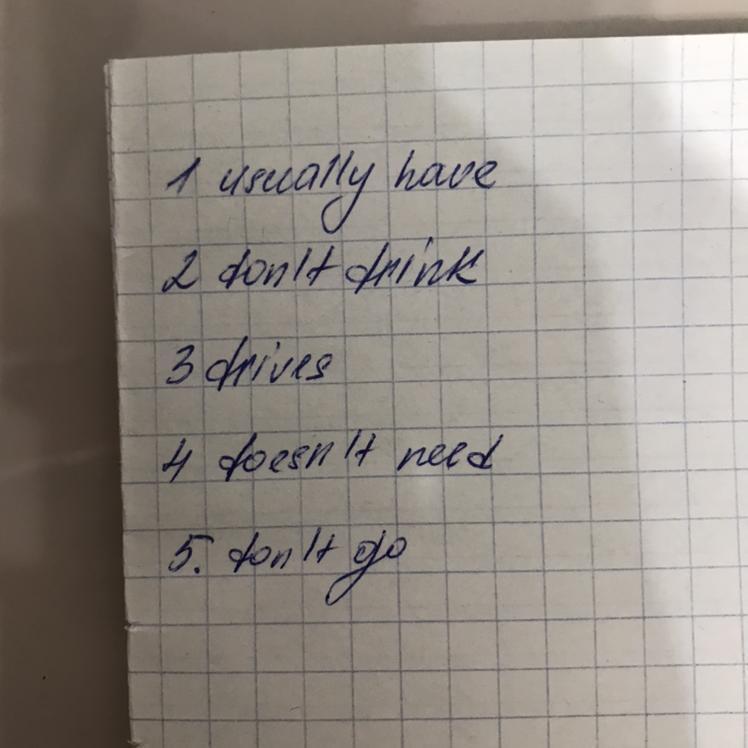 1 usually have
2 don't drink
3 drives
4 doesn't need
5. don't go